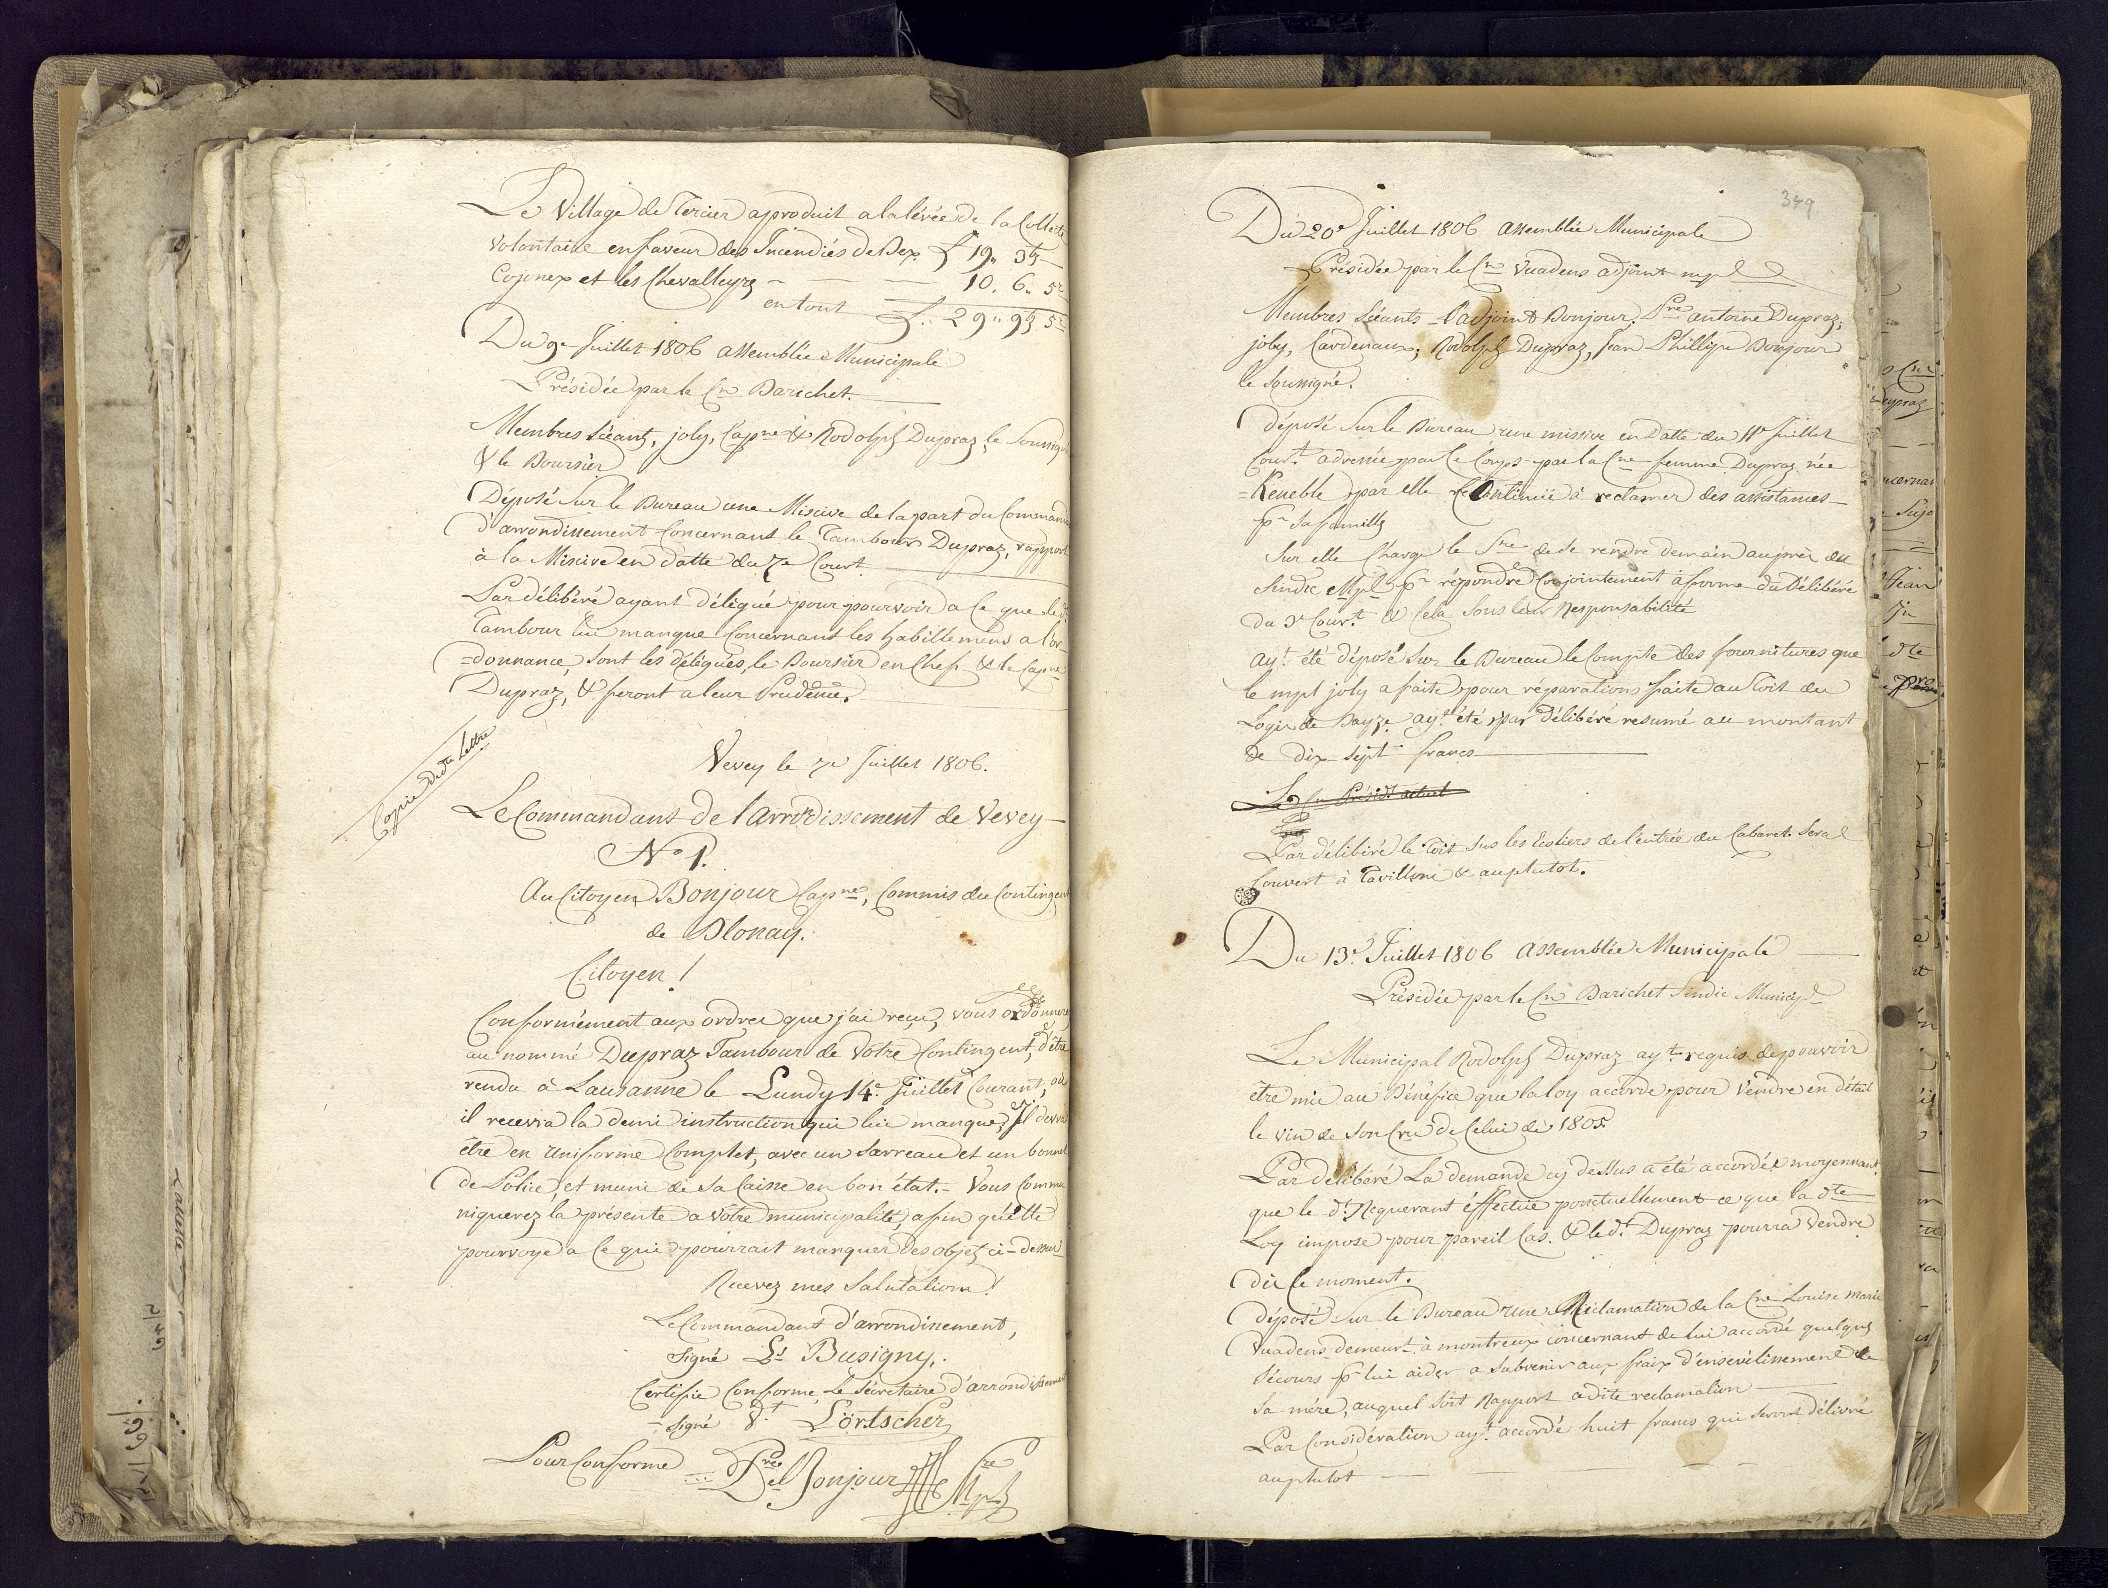 Le Village de Tercier a produit a la lévée de la Collecte
volontaire en faveur des Incendiés de Bex £ 19,, 3
Cojonex et les Chevalleyre - — — 10. 6,, 5
en tout £,, 29,, 9 5
Du 9e Juillet 1806 assemblée Municipale
Présidée par le Cn Barichet.
Membres Séants, joly, Capne & Rodolph Dupraz, le Soussigné
& le Boursier
Déposé Sur le Bureau une Missive de la part du Commandant
d'arrondissement Concernant le Tambour Dupraz, rapport
à la Missive en datte du 7e Court
Par délibéré ayant délégué pour pourvoir a ce que le dt
Tambour lui manque Concernant les habillemens a l'or
=donnance, Sont les délégués, le Boursier en Chef & le Capne
Dupraz, & feront a leur Prudence.
Copie de dte Lettre
Vevey le 7e Juillet 1806.
Le Commandant de l'Arrondissement de Vevey
No 1.
Au Citoyen Bonjour Capne, Commis du Contingent
de Blonay.
Citoyen!
Conformément aux ordres que j'ai reçu, vous ordonnerez
au nommé Dupraz Tambour de votre Contingent, d'être
rendu à Lausanne le Lundy 14e Juillet Courant, où
il recevra la demi instruction qui lui manque, Il devra
être en Uniforme Complet, avec un Sarreau et un bonnet
de Police, et muni de Sa Caisse en bon état. – Vous Commu
niquerez la présente a vôtre municipalité, afin qu'elle
pourvoye a ce qui pourrait manquer des objet ci-dessus
Recevez mes Salutations!
Le Commandant d'arrondissement,
Signé Ls Busigny,
Certifié Conforme Le Sécretaire d'arrondissement
= Signé Lörtscher
Pour Conforme Pre el Bonjour Sre Mpl
349
Du 20e Juillet 1806 assemblée Municipale
Présidée par le Cn Vuadens adjoint mpl
Membres Séants l'adjoint Bonjour, Pre antoine Dupraz,
joly, Cardenaux, Rodolph Dupraz, Jean Phillipe Bonjour
le Soussigné.
déposé Sur le Bureau une missive en Datte du 11e Juillet
Court adressée par le Corps par la Cne femme Dupraz née
=Keneble par elle Continue à reclamer des assistances
pr Sa famille
Sur elle Charge le Sre de Se rendre demain auprès du
Sindic Mpl pr répondre Conjointement à forme du Délibéré
du 3e Court & cela Sous leur Responsabilité
ayt été déposé Sur le Bureau le Compte des fournitures que
le mpl joly a faite pour réparations faite au toit du
Logis de Bayze ayt été par délibéré resumé au montant
de dix-sept francs
Le Cn Présidt actuel
Par délibéré le toit Sus les Escliers de l'entrée du Cabaret Sera
Couvert à Tavillons & au plutot.
Du 13e Juillet 1806 assemblée Municipale
Présidée par le Cn Barichet Sindic Municipl
Le Municipal Rodolph Dupraz ayt requis de pouvoir
être mis au Bénéfice que la loy accorde pour Vendre en détail
le vin de Son Cru de Celui de 1805
Par délibéré La demande cy dessus a été accordée moyennant
que le dt Requerant éffectue ponctuellement ce que la dte
Loy impose pour pareil Cas. & le dt Dupraz pourra Vendre
dès ce moment.
déposé Sur le Bureau une Réclamation de la Cne Louise Marie
Vuadens demeurt à montreux concernant de lui accordé quelques
Sécours pr lui aider a Subvenir aux fraix d'ensevelissement de
Sa mère, auquel Soit Rapport a dite reclamation
Par Considération ayt accordé huit francs qui Seront délivré
au plutot